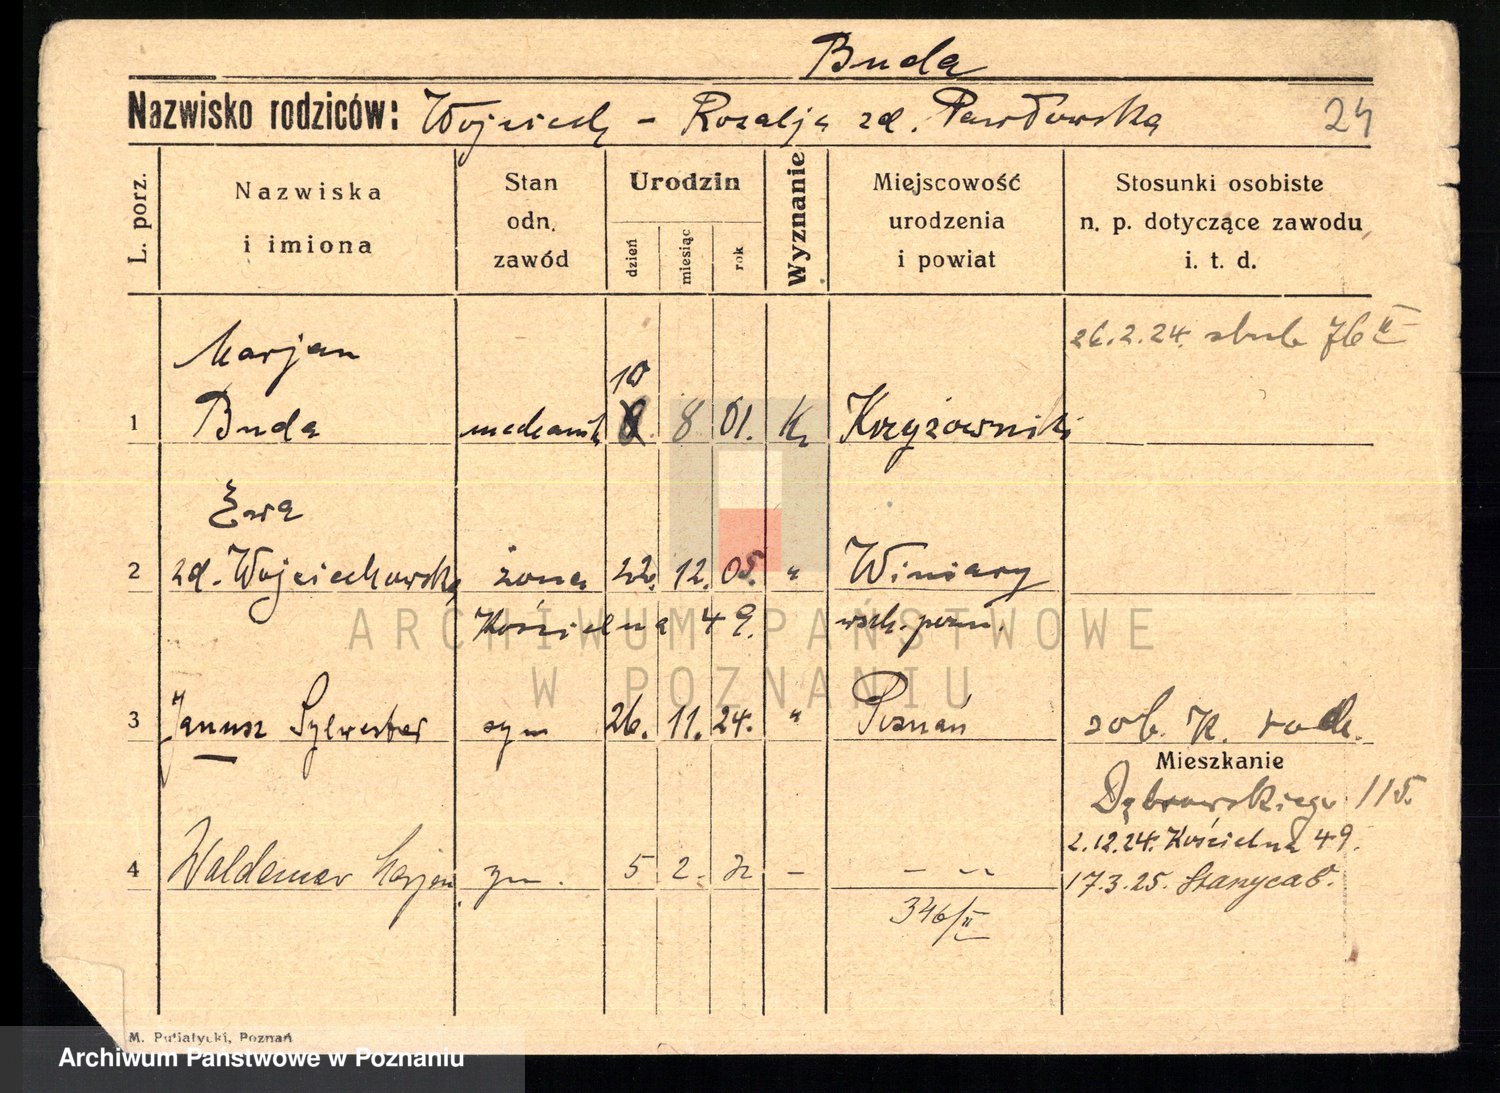 Buda
Nazwisko rodziców: Wojciech - Rozalja zd. Pawłowska 24
L. porz.
Nazwiska
i imiona
Stan
odn.
zawód
Urodzin
dzień
miesiąc
rok
Wyznanie
Miejscowość
urodzenia
i powiat
Stosunki osobiste
n. p. dotyczące zawodu
i. t. d.
Marjan
26.2.24. 76 II
10
1 Buda mechanik 8. 8 01. Krzyżowniki
Ewa
2 zd. Wojciechowska żona 22. 12. 05. " Winiary
Kościelna 49. wsch. pozn.
3 Janusz Sylwester syn 26. 11. 24. " Poznań sob. K. rode.
Mieszkanie
Dąbrowskiego 115.
2.12.24. Kościelna 49.
4 Waldemar Marjan syn. 5 2. - - "
17.3.25. Stanyca 5.
346/II
M. Putiatycki, Poznań
ARCHIWUM PAŃSTWOWE
W POZNANIU
Archiwum Państwowe w Poznaniu